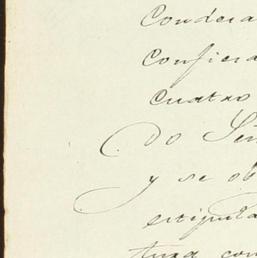 Condera
confiera
cuatro
do Señ
y se ob
estipula
tura con